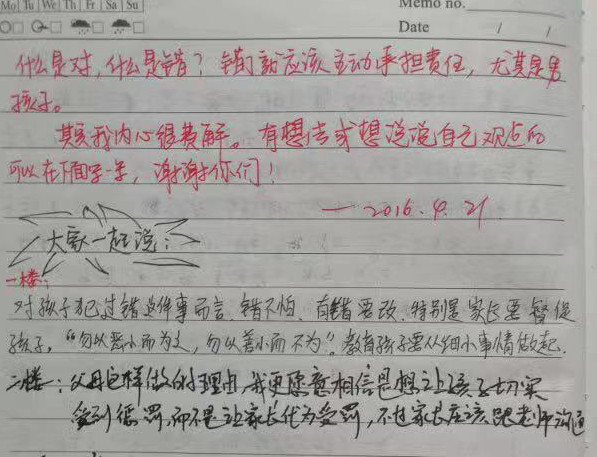 Mo Tu We Th Fr Sa Su
Memo no.
Date / /
什么是对，什么是错？错的就应该主动承担责任，尤其是男
孩子。
其实我内心很费解。有想法或想说说自己观点的
可以在下面写一写，谢谢你们！
— 2016.4.21
大家一起说：
一楼：
对孩子犯过错这件事而言，错不怕，有错要改，特别是家长要督促
孩子，“勿以恶小而为之，勿以善小而不为”。教育孩子要从细小事情做起。
二楼：父母这样做的理由，我更愿意相信是想让孩子切实
受到惩罚，而不是让家长代为受罚，不过家长应该跟老师沟通